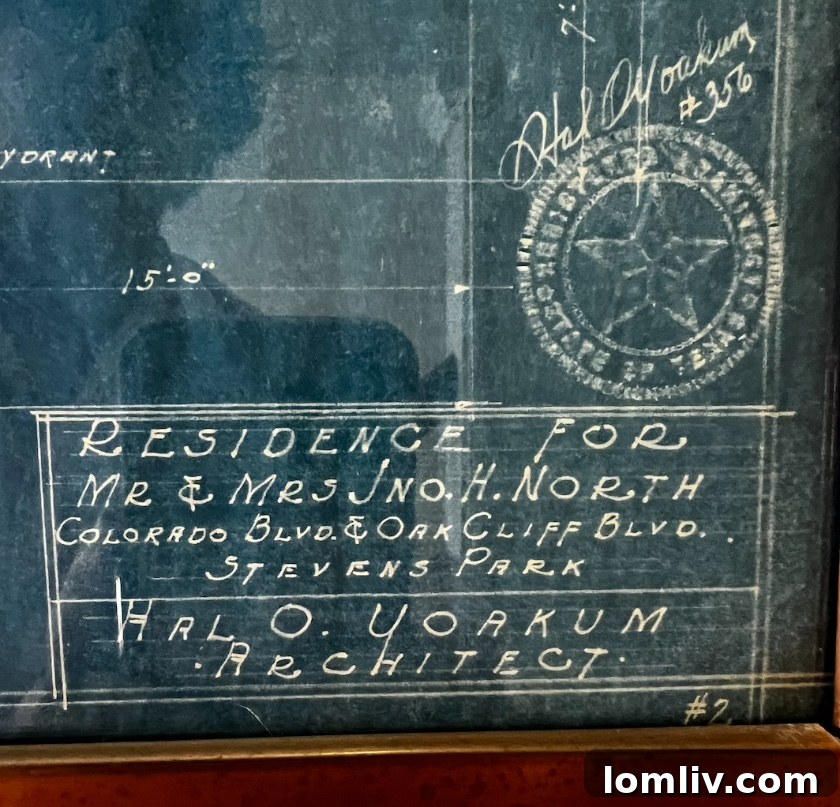 7'
Hal O Yoakum
#356
YDRANT
15'-0"
REGISTERED ARCHITECT
STATE OF TEXAS
RESIDENCE FOR
MR & MRS JNO. H. NORTH
COLORADO BLVD. & OAK CLIFF BLVD.
STEVENS PARK
HAL O. YOAKUM
·ARCHITECT·
#2
lomliv.com